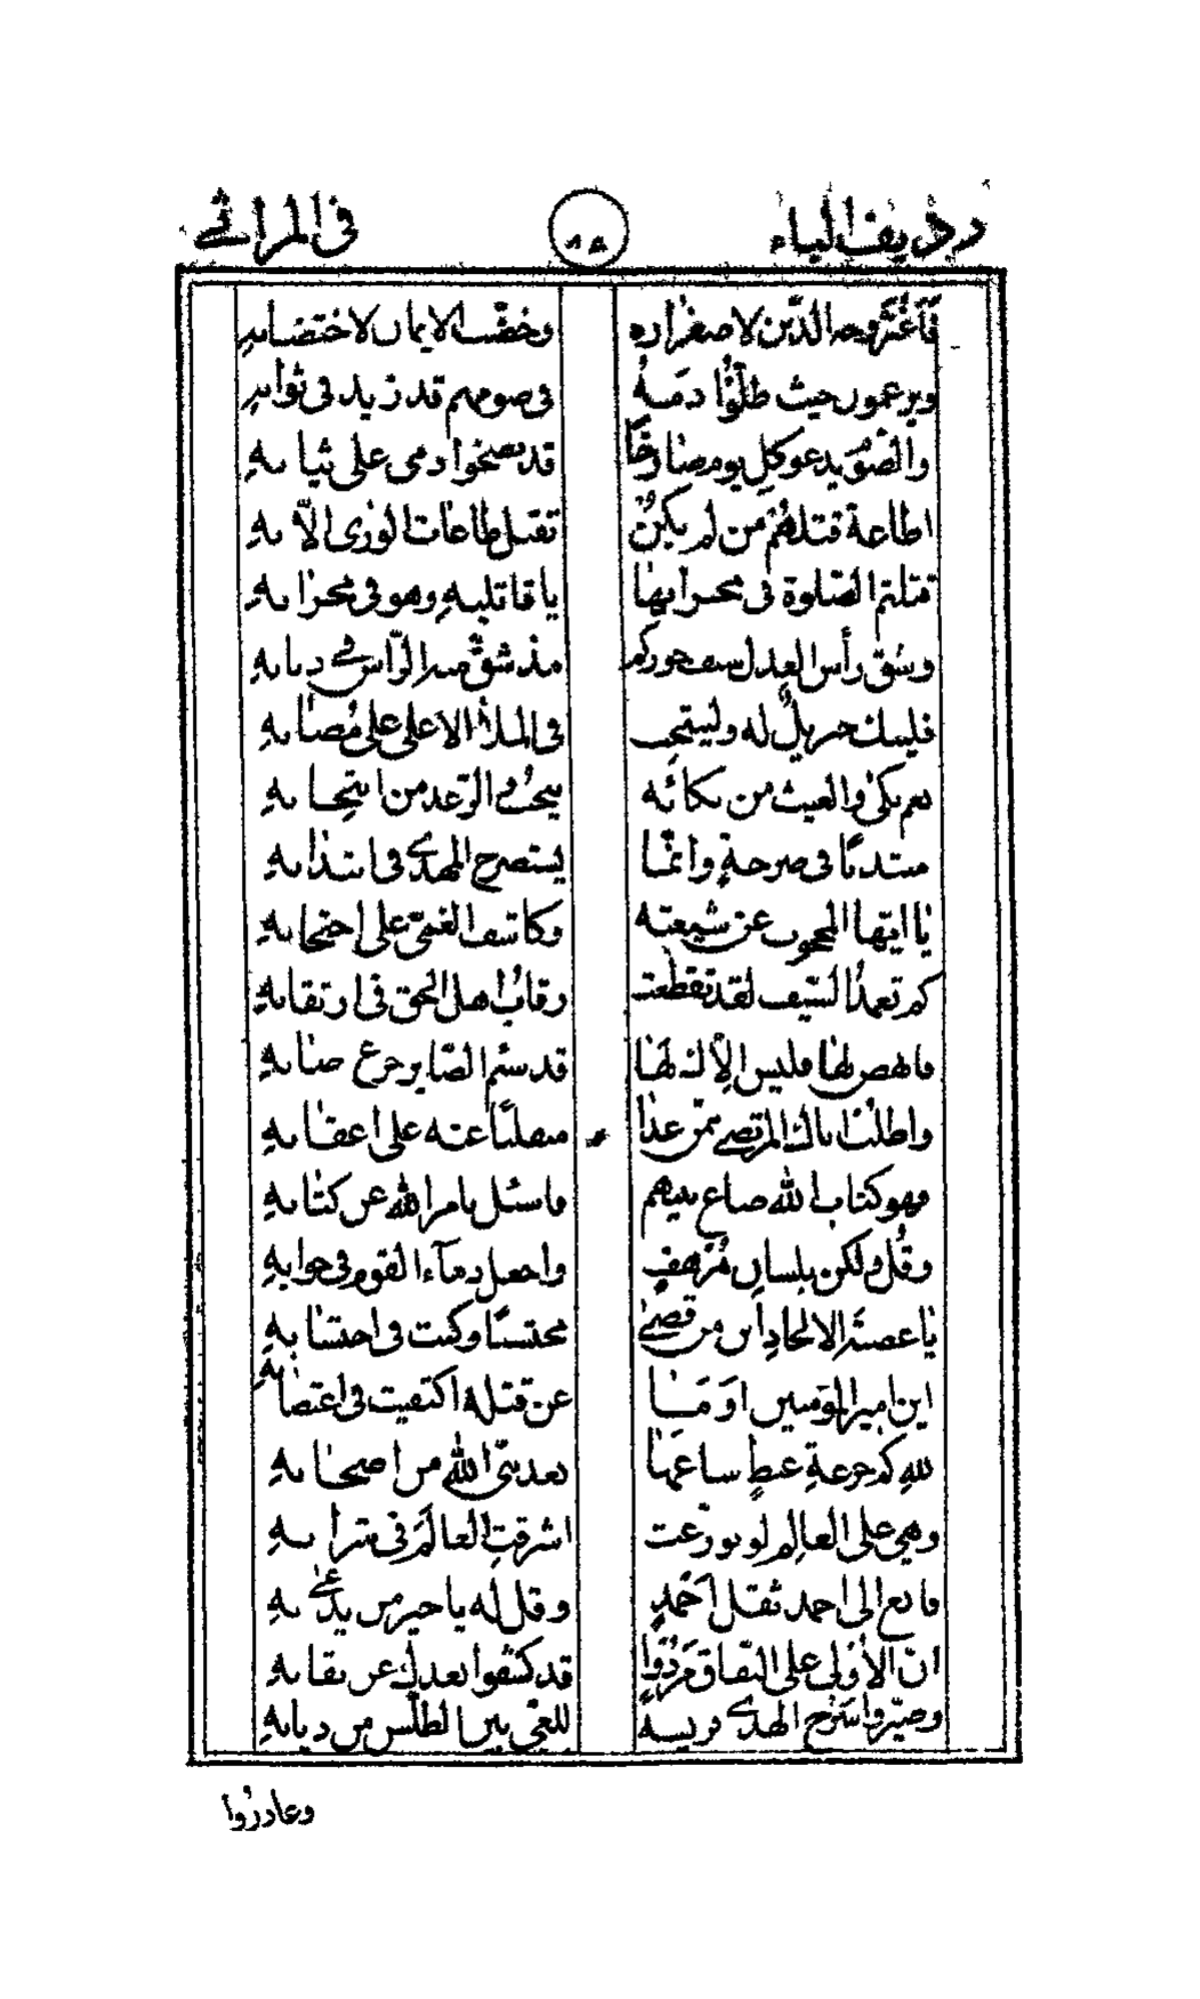 رديف الباء ١٥ في المراثي
فاغبرّ وجه الدّين لاصفراره وخضّب الايمان لاختضابه
ويزعمون حيث طلّوا دمه في صومهم قد زيد في ثوابه
والصّوم يدعو كل يوم صارخًا قد نضحوا دمي على ثيابه
اطاعة قتلهم من لم يكن تقبل طاعات الورى الّا به
قتلتم الصّلوة في محرابها يا قاتليه وهو في محرابه
وشق رأس العدل سيف جوركم مذ شقّ منه الرّأس في دبابه
فليبك جبريل له ولينتحب في الملأ الاعلى على مصابه
نعم بكى والغيث من بكائه ينحب والرّعد من انتحابه
منتدبًا في صرخة وانّما يستصرخ المهدي في انتدابه
يا ايّها المحجوب عن شيعته وكاشف الغمّى على احتجابه
كم تغمد السّيف لقد تقطّعت رقاب اهل الحق في ارتقابه
فانهض لها فليس الّاك لها قد سئم الصّابر جرع صابه
واطلب اباك المرتضى ممّن غدا منقلبًا عنه على اعقابه
فهو كتاب الله ضاع بينهم فاسئل بامر الله عن كتابه
وقل ولكن بلسان مرهف واجعل دمآء القوم في جوابه
يا عصبة الالحاد اين من قضى محتسبًا وكنت في احتسابه
اين امير المؤمنين اوما عن قتله اكتفيت في اغتصابه
لله كم جرعة غيظ ساغها بعد نبيّ الله من اصحابه
وهي على العالم لو توزّعت اشرقت العالم في شرابه
فانع الى احمد ثقل احمد وقل له يا خير من يدعى به
انّ الاولى على النّفاق مردوا قد كشفوا بعدك عن نقابه
وصيّروا سرح الهدى فريسة للغيّ بين الطلّس من ذيابه
وغادروا